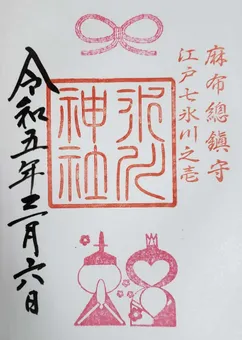 麻布總鎮守
江戸七氷川之壱
氷川
神社
令和五年三月六日